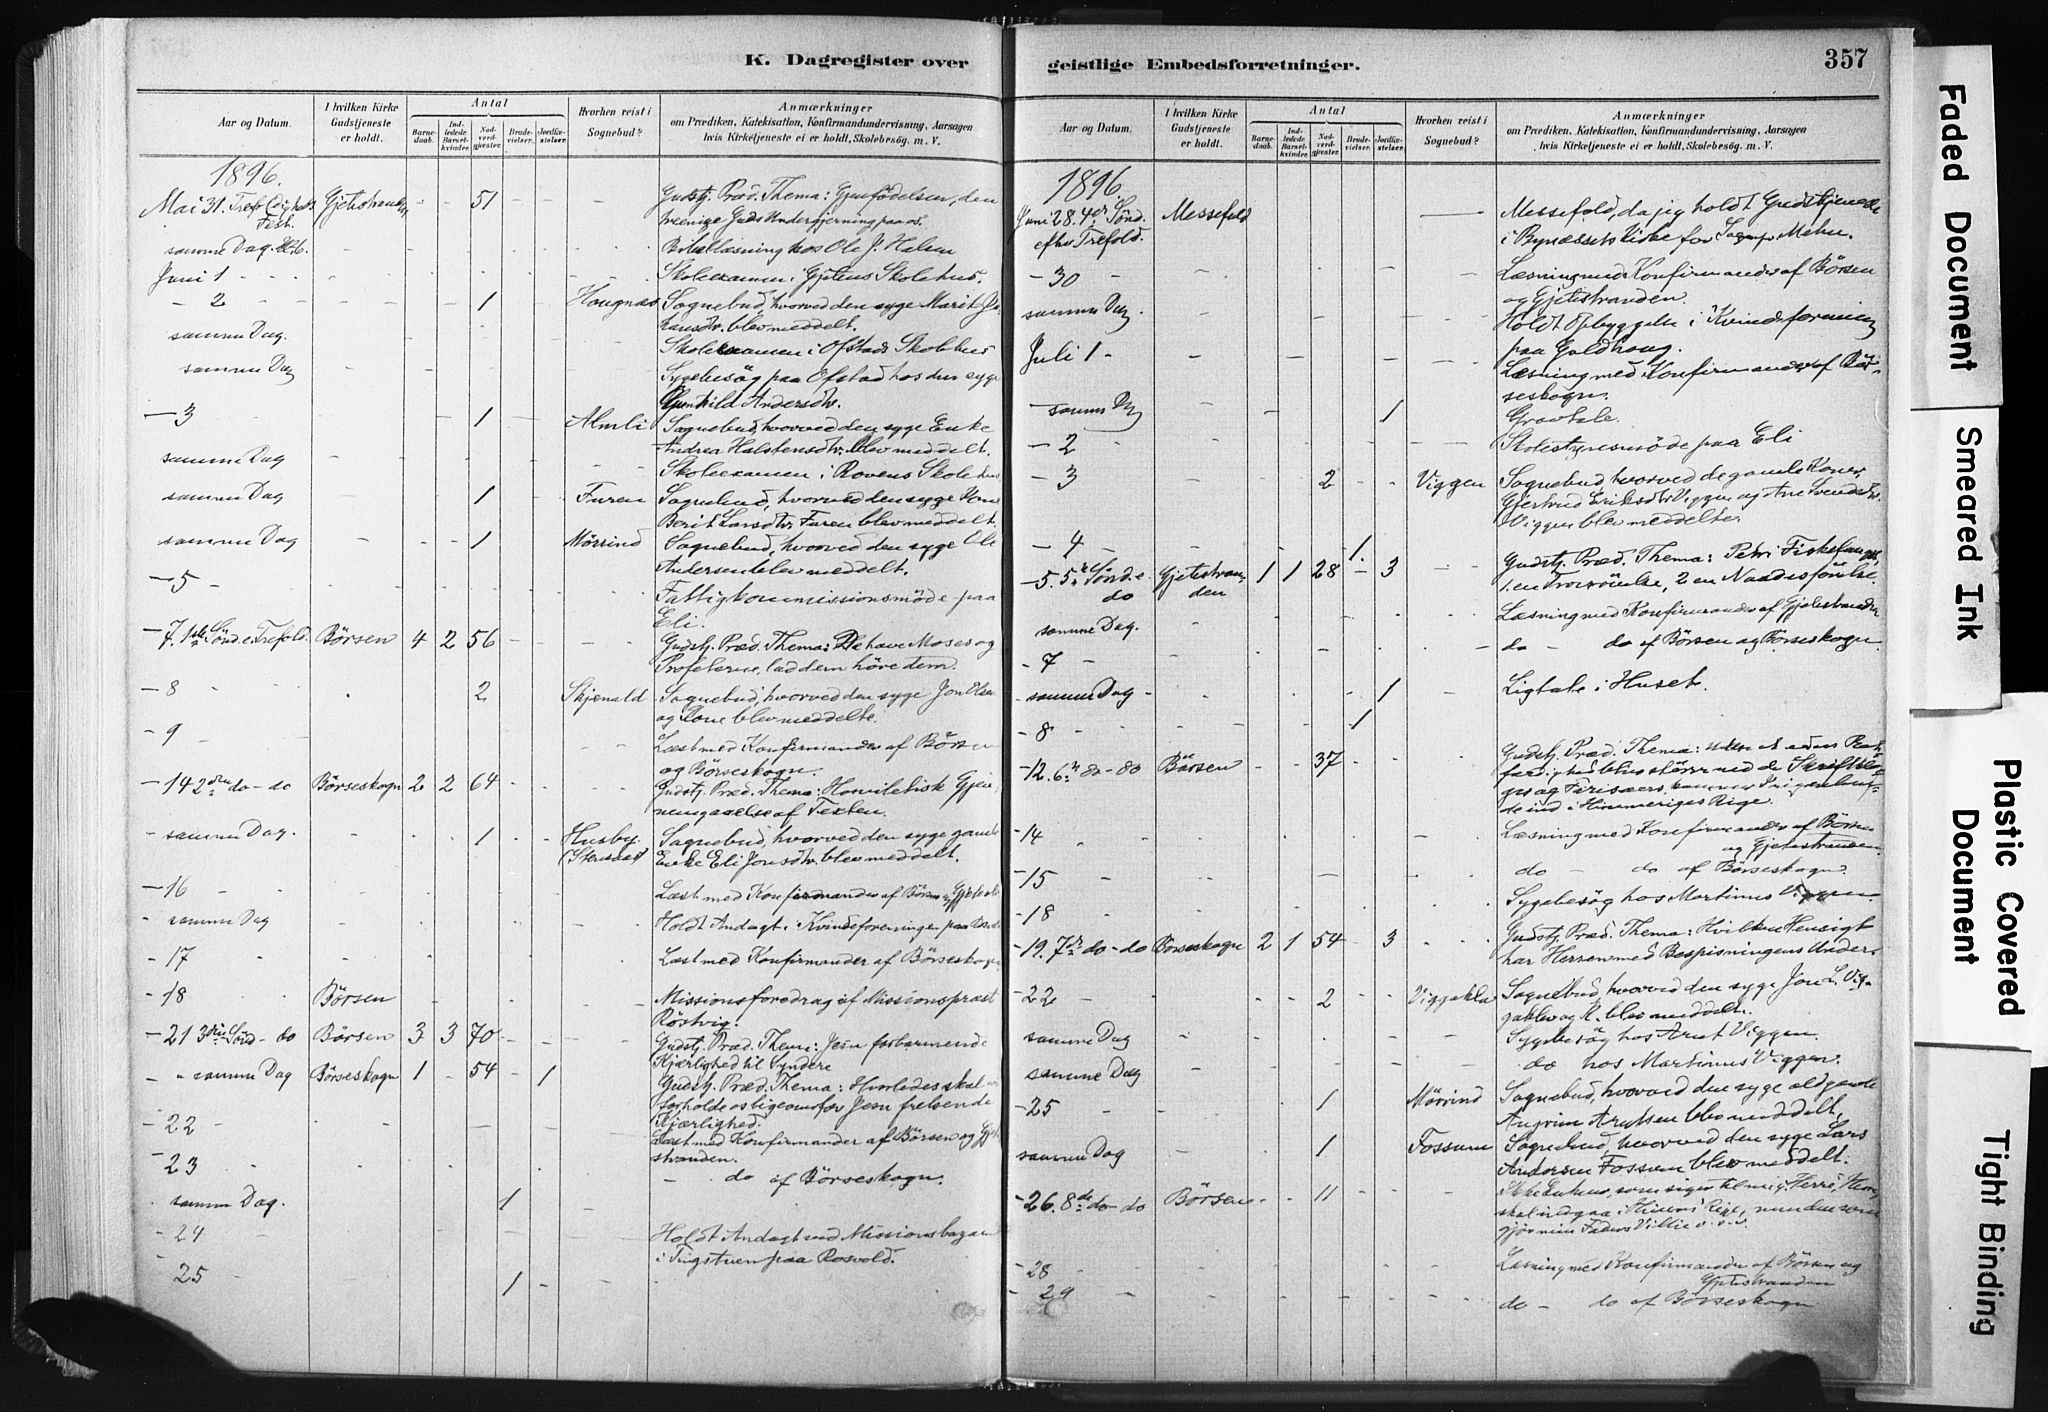 K. Dagregister over
Aar og Datum.
I hvilken Kirke Gudstjeneste er holdt.
Antal
Barne-daab.
Ind-ledede Barsel-kvinder.
Nad-verd-gjæster.
Brude-vielser.
Jordfæ-stelser.
Hvorhen reist i Sognebud?
Anmærkninger
om Prædiken, Katekisation, Konfirmandundervisning, Aarsagen
hvis Kirketjeneste ei er holdt, Skolebesög. m. V.
1896.
Mai 31. Gjetestranden - - 51 Gudstj. Præd. Thema: Gjenfödelsen, den
treenige Guds Undergjerning paa os.
samme Dag Bibellæsning hos Ole J. Halsen
Juni 1 Skoleexamen i Gjetens Skolehus.
- 2 1 Hougnæs Sognebud, hvorved den syge Marit Jo-
hansdtr. blev meddelt.
samme Dag. Skoleexamen i Ofstads Skolehus
samme Dag Sygebesög paa Ofstad hos den syge
Gunhild Andersdtr.
- 3 1 Almli Sognebud, hvorved den syge Enke
Andrea Halstensdtr. blev meddelt.
samme Dag Skoleexamen i Rovens Skolehus
samme Dag 1 Furen Sognebud, hvorved den syge Kone
Berit Larsdtr. Furen blev meddelt.
samme Dag 1 Mörrind Sognebud, hvorved den syge Ole
Andersen blev meddelt.
- 5 - Fattigkommissionsmöde paa
Eli.
- 7. 1ste Sönd. e. Trefold. Börsen 4 2 56 Gudstj. Præd. Thema: De have Moses og
Profeterne, lad dem höre dem.
- 8 2 Skjenald Sognebud, hvorved den syge Jon Olsen
og Kone blev meddelte.
- 9 Læst med Konfirmander af Börsen
og Börseskogn.
- 14 2den do - do Börseskogn 2 2 64 Gudstj. Præd. Thema: Homiletisk Gjen-
nemgaaelse af Texten.
samme Dag. 1 Husby (Stensaas) Sognebud, hvorved den syge gamle
Enke Eli Jonsdtr. blev meddelt.
- 16 Læst med Konfirmander af Börsen og Gjetestr.
samme Dag Holdt Andagt i Kvindeforeningen paa
- 17 Læst med Konfirmander af Börseskogn
- 18 Börsen Missionsforedrag af Missionspræst
Röstvig.
- 21 3die Sönd - do Börsen 3 3 70 Gudstj. Præd. Thema: Jesu forbarmende
Kjærlighed til Syndere
- " samme Dag Börseskogn 1 - 54 - 1 Gudstj. Præd. Thema: Hvorledes skal vi
forholde os ligeoverfor Jesu frelsende
Kjærlighed.
- 22 Læst med Konfirmander af Börsen og Gjete-
stranden.
- 23 - do af Börseskogn.
samme Dag. 1
- 24 Holdt Andagt ved Missionsbazaren
i Tingstuen paa Rosvold.
- 25 1
geistlige Embedsforretninger.
357
Aar og Datum.
I hvilken Kirke Gudstjeneste er holdt.
Antal
Barne-daab.
Ind-ledede Barsel-kvinder.
Nad-verd-gjæster.
Brude-vielser.
Jordfæ-stelser.
Hvorhen reist i Sognebud?
Anmærkninger
om Prædiken, Katekisation, Konfirmandundervisning, Aarsagen
hvis Kirketjeneste ei er holdt, Skolebesög. m. V.
1896.
Juni 28. 4de Sönd. efter Trefold. Messefald Messefald, da jeg holdt Gudstjeneste
i Bynæssets Kirke for Sognepr.
- 30 Læsning med Konfirmander af Börsen
og Gjetestranden.
samme Dag. Holdt Opbyggelse i Kvindeforening
paa Guldhaug.
Juli 1 - Læsning med Konfirmander af Bör-
seskogn.
- samme Dag 1 Gravtale.
- 2 Skolestyresmöde paa Eli
- 3 2 Viggen Sognebud, hvorved de gamle Koner,
Gjertrud Eriksdtr. Viggen og Ane Svendsdtr.
Viggen blev meddelte.
- 4 1
- 5. 5te Sönd. e. do Gjetestranden 1 1 28 - 3 Gudstj. Præd. Thema: Petri Fiskefangst,
1. en Trosprövelse, 2 en Naadesprövelse.
samme Dag. Læsning med Konfirmander af Gjetestranden
- 7 do - do af Börsen og Börseskogn.
- samme Dag 1 Ligtale i Huset.
- 8 1
- 12. 6te do - do Börsen 37 Gudstj. Præd. Thema: Uden at eders Ret-
færdighed blive större end de Skriftklo-
ges og Farisæers, komme I ingenlun-
de ind i Himmeriges Rige.
- 14 Læsning med Konfirmander af Börsen
og Gjetestranden.
- 15 do - do af Börseskogn.
- 18 Sygebesög hos Martinus Viggen.
- 19. 7de do - do Börseskogn 2 1 54 - 3 Gudstj. Præd. Thema: Hvilken Hensigt
har Herren med Bespisningens Under.
- 22 2 Viggakla Sognebud, hvorved den syge Jon L. Vig-
gaklev og K. blev meddelt.
samme Dag Sygebesög hos Arnt Viggen.
samme Dag do hos Martinus Viggen.
- 25 1 Mörrind Sognebud, hvorved den syge aldgamle
Angrim Arntsen blev meddelt.
samme Dag 1 Fossum Sognebud, hvorved den syge Lars
Andersen Fossum blev meddelt.
- 26. 8de do - do Börsen 11 Ikke Enhver, som siger til mig: Herre, Herre,
skal indgaa i Himmeriges Rige, men den som
gjör min Faders Villie o.s.v.
- 28 Læsning med Konfirmander af Börsen og
Gjetestranden
- 29 do - do af Börseskogn
Faded Document
Smeared Ink
Plastic Covered Document
Tight Binding